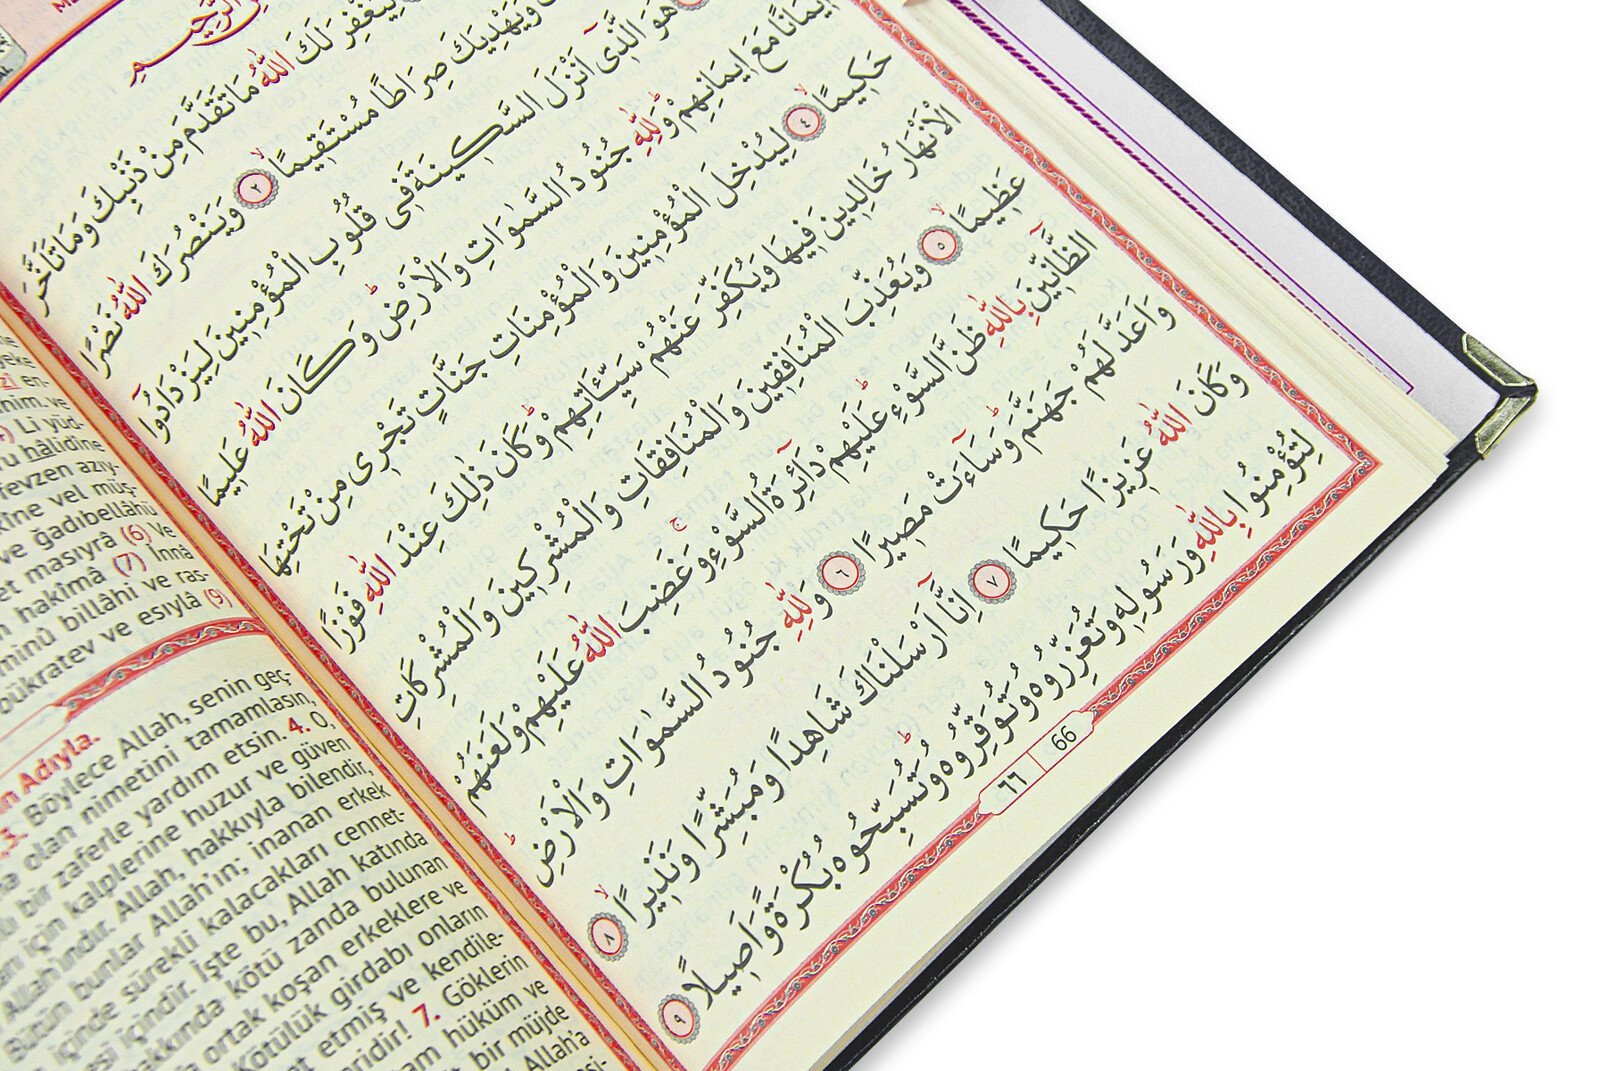 الرَّحِيمِ
لِيَغْفِرَ لَكَ اللّٰهُ مَا تَقَدَّمَ مِنْ ذَنْبِكَ وَمَا تَاَخَّرَ
وَيَهْدِيَكَ صِرَاطًا مُسْتَقِيمًاۙ ٢ وَيَنْصُرَكَ اللّٰهُ نَصْرًا
هُوَ الَّذٓى اَنْزَلَ السَّكِينَةَ فِى قُلُوبِ الْمُؤْمِنِينَ لِيَزْدَادُٓوا
اِيمَانًا مَعَ اِيمَانِهِمْۜ وَلِلّٰهِ جُنُودُ السَّمٰوَاتِ وَالْاَرْضِۜ وَكَانَ اللّٰهُ عَلِيمًا
حَكِيمًاۙ ٤ لِيُدْخِلَ الْمُؤْمِنِينَ وَالْمُؤْمِنَاتِ جَنَّاتٍ تَجْرِى مِنْ تَحْتِهَا
الْاَنْهَارُ خَالِدِينَ فِيهَا وَيُكَفِّرَ عَنْهُمْ سَيِّـَٔاتِهِمْۜ وَكَانَ ذٰلِكَ عِنْدَ اللّٰهِ فَوْزًا
عَظِيمًاۙ ٥ وَيُعَذِّبَ الْمُنَافِقِينَ وَالْمُنَافِقَاتِ وَالْمُشْرِكِينَ وَالْمُشْرِكَاتِ
الظَّٓانِّينَ بِاللّٰهِ ظَنَّ السَّوْءِۜ عَلَيْهِمْ دَٓائِرَةُ السَّوْءِۚ وَغَضِبَ اللّٰهُ عَلَيْهِمْ وَلَعَنَهُمْ
وَاَعَدَّ لَهُمْ جَهَنَّمَۜ وَسَٓاءَتْ مَصِيرًا ٦ وَلِلّٰهِ جُنُودُ السَّمٰوَاتِ وَالْاَرْضِۜ
وَكَانَ اللّٰهُ عَزِيزًا حَكِيمًا ٧ اِنَّٓا اَرْسَلْنَاكَ شَاهِدًا وَمُبَشِّرًا وَنَذِيرًاۙ ٨
لِتُؤْمِنُوا بِاللّٰهِ وَرَسُولِهِ وَتُعَزِّرُوهُ وَتُوَقِّرُوهُۜ وَتُسَبِّحُوهُ بُكْرَةً وَاَصِيلًا ٩
٦٦ 66
en-
him. ve
Li yüd-
hâlidîne
fevzen azıy-
kîne vel müş-
ve ğadıbellâhü
et masıyrâ (6) Ve
hakîmâ (7) İnnâ
minû billâhi ve ras-
bükratev ve esıylâ (9)
Adıyla.
3. Böylece Allah, senin geç
olan nimetini tamamlasın,
bir zaferle yardım etsin. 4. O,
için kalplerine huzur ve güven
Allah'ındır. Allah, hakkıyla bilendir,
Bütün bunlar Allah'ın; inanan erkek
içinde sürekli kalacakları cennet-
içindir. İşte bu, Allah katında
hakkında kötü zanda bulunan
ortak koşan erkeklere ve
Kötülük girdabı onların
et etmiş ve kendile-
7. Göklerin
hüküm ve
bir müjde
Allah'a